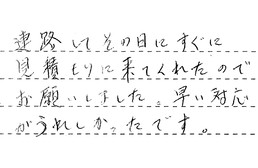 連路してその日にすぐに
見積もりに来てくれたので
お願いしました。早い対応
がうれしかったです。